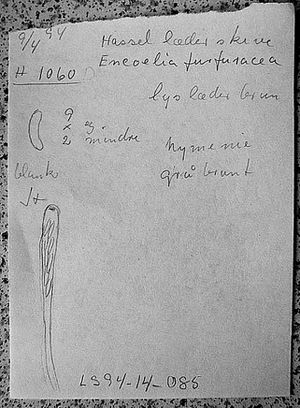 9/4 94
Hassel læderskive
# 1060 D
Encoelia furfuracea
lys læder brun
9
x
2 mindre
hymenie
gråbrunt
blanke
J+
LS94-14-085